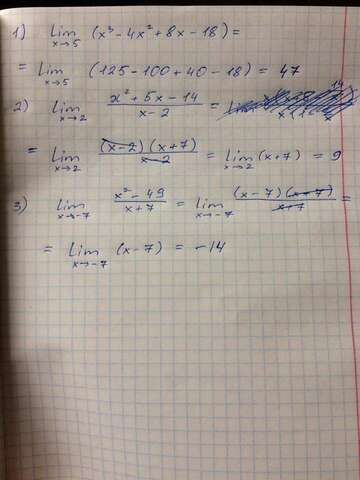 1) lim x→5 (x³ - 4x² + 8x - 18) =
= lim x→5 (125 - 100 + 40 - 18) = 47
2) lim x→2 x² + 5x - 14 / x - 2 =
= lim x→2 (x-2)(x+7) / x-2 = lim x→2 (x+7) = 9
3) lim x→-7 x² - 49 / x+7 = lim x→-7 (x-7)(x+7) / x+7 =
= lim x→-7 (x-7) = -14